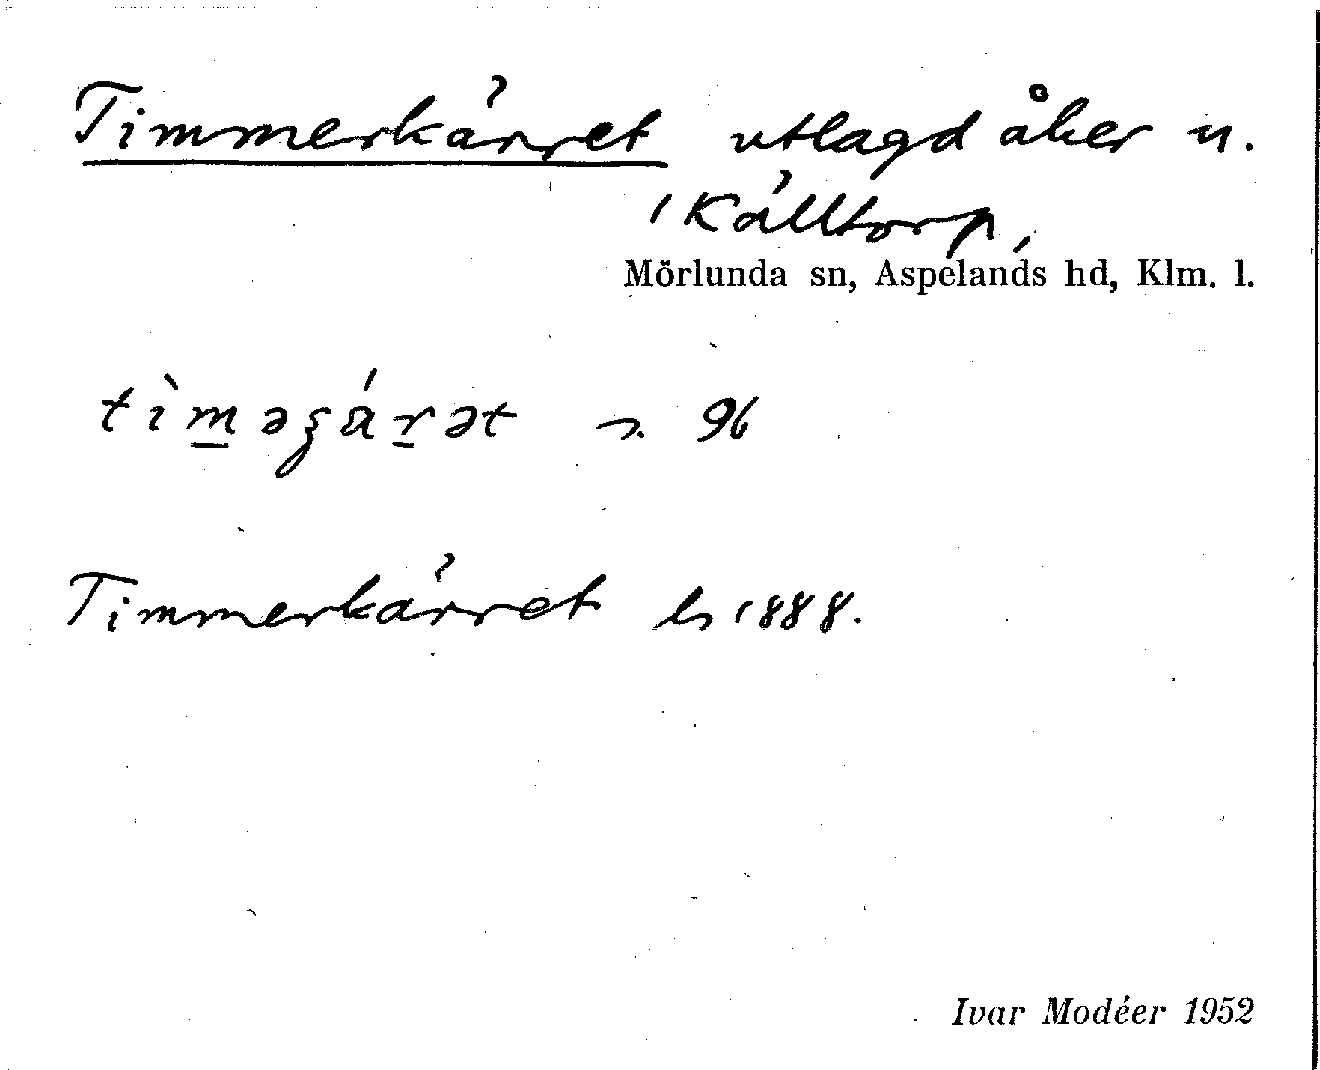 Timmerkärret utlagd åker n.
i Källtorp,
Mörlunda sn, Aspelands hd, Klm. l.
tìm̲əʒár̲ət n. 96
Timmerkärret ls 1888.
Ivar Modéer 1952